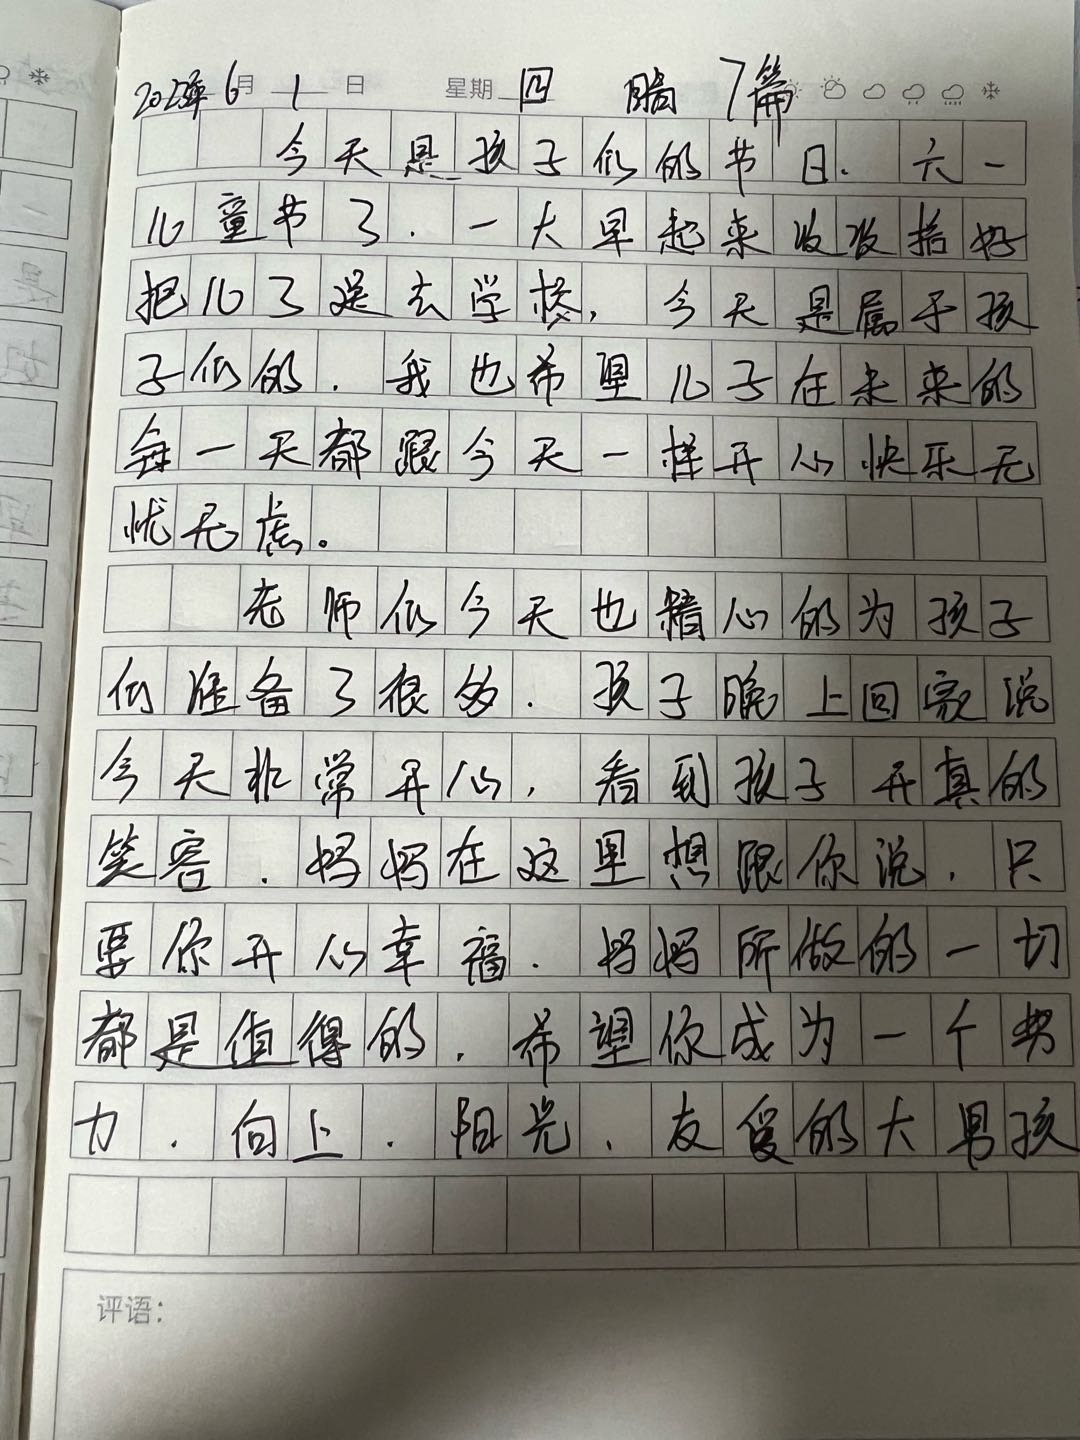 2023年6月1日 星期四 晴 7篇
今天是孩子们的节日.六一
儿童节了.一大早起来收收拾好
把儿子送去学校,今天是属于孩
子们的.我也希望儿子在未来的
每一天都跟今天一样开心快乐无
忧无虑。
老师们今天也精心的为孩子
们准备了很多.孩子晚上回家说
今天非常开心,看到孩子开真的
笑容.妈妈在这里想跟你说.只
要你开心幸福.妈妈所做的一切
都是值得的.希望你成为一个努
力.向上.阳光.友爱的大男孩
评语: